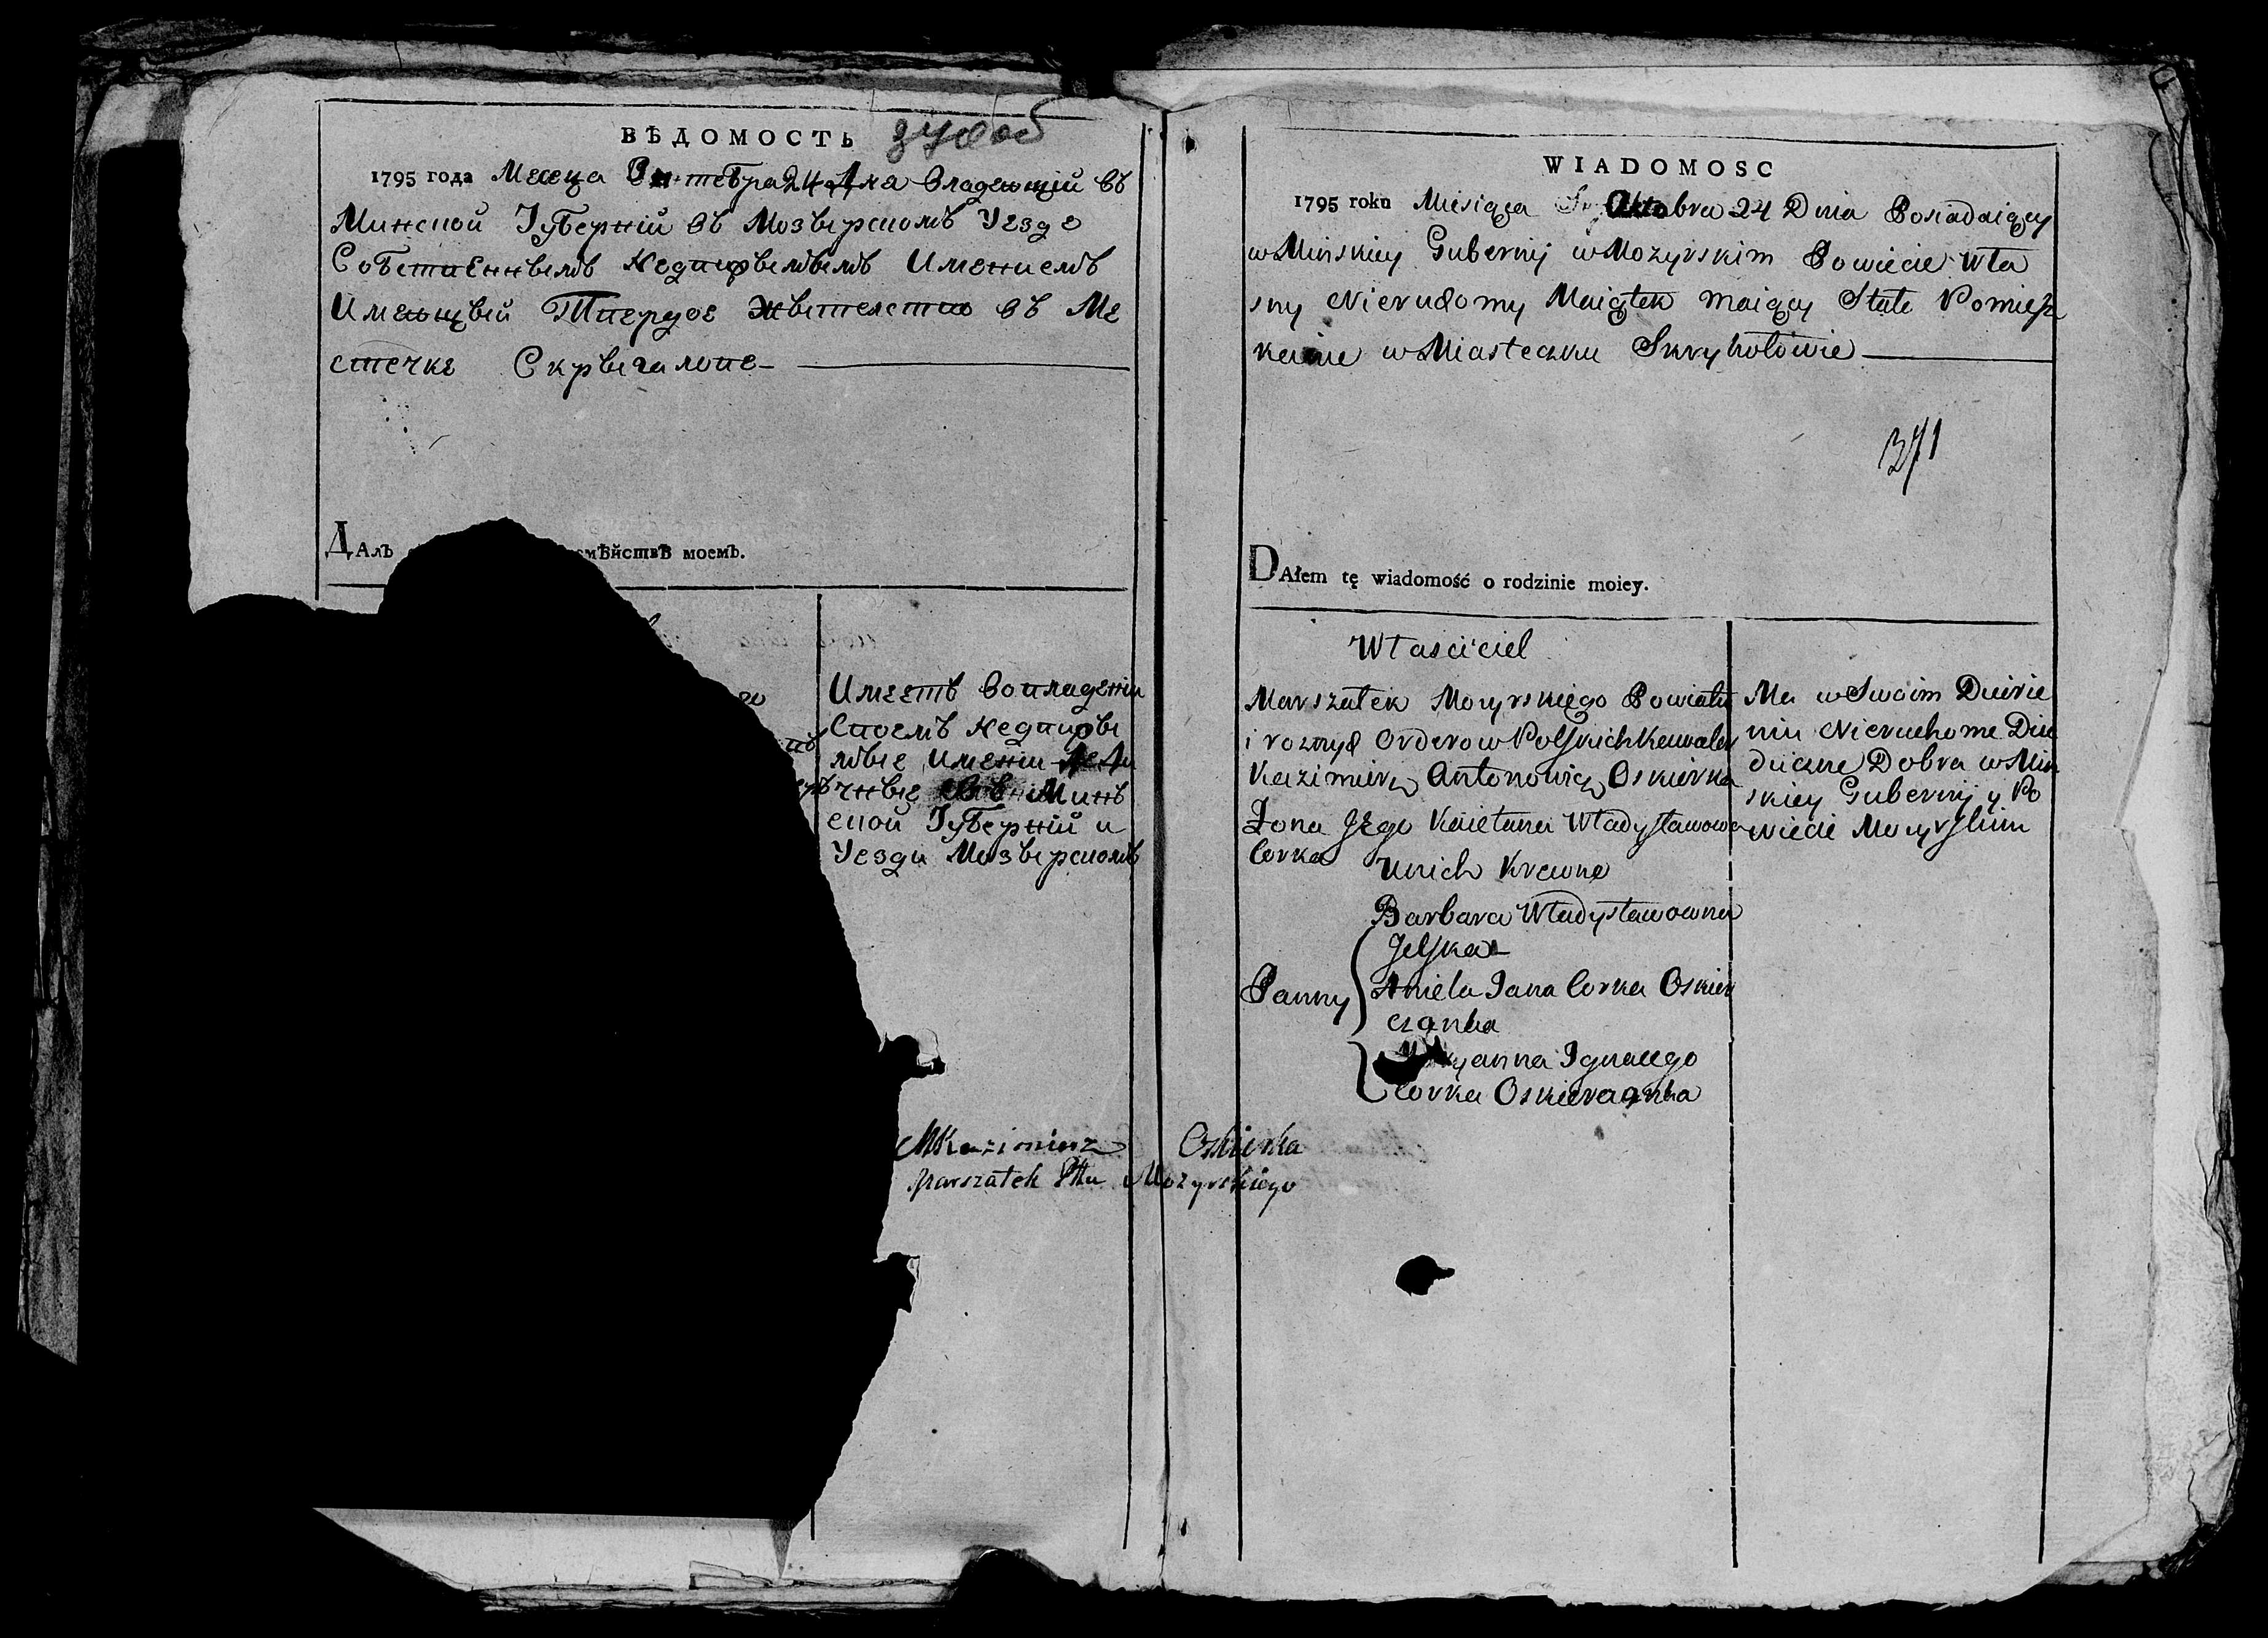 ВѢДОМОСТЬ
1795 года Месеца Октебра 24 Дня Владеющій въ
Минской Губерній въ Мозырскомъ Уезде
Собственнымъ Недвижымымъ Имениемъ
Имеющый Твердое Жытелство въ Ме
стечке Скрыгалове
ДАлЪ емѢйствѢ моемЪ.
Имеетъ во владеніи
Своемъ недвижы
мые имении Деди
чные въ Минъ
ской Губерній и
Уезди Мозырскомъ
WIADOMOSC
1795 roku Miesiąca Oktobra 24 Dnia Posiadaiący
w Minskiey Gubernij w Mozyrskim Powiecie Wła
sny Nieruchomy Maiątek maiący Stałe Pomiesz
kanie w Miasteczku Skryhołowie
371
DAłem tę wiadomość o rodzinie moiey.
Własciciel
Marszałek Mozyrskiego Powiatu
i roznych Orderow Polskich Kawaler
Kazimierz Antonowicz Oskierka
Zona Jego Kaietana Władysławowa
Corka
Unich Krewne
Barbara Władysławowna
Jelska
Panny Aniela Jana Corka Oskier
czanka
anna Ignacego
Corka Oskierczanka
Ma w Swoim Dzierże
niu Nieruchome Dzie
dziczne Dobra w Min
skiey Gubernij y Po
wiecie Mozyrskim
Kazimierz Oskierka
Marszałek Pttu Mozyrskiego